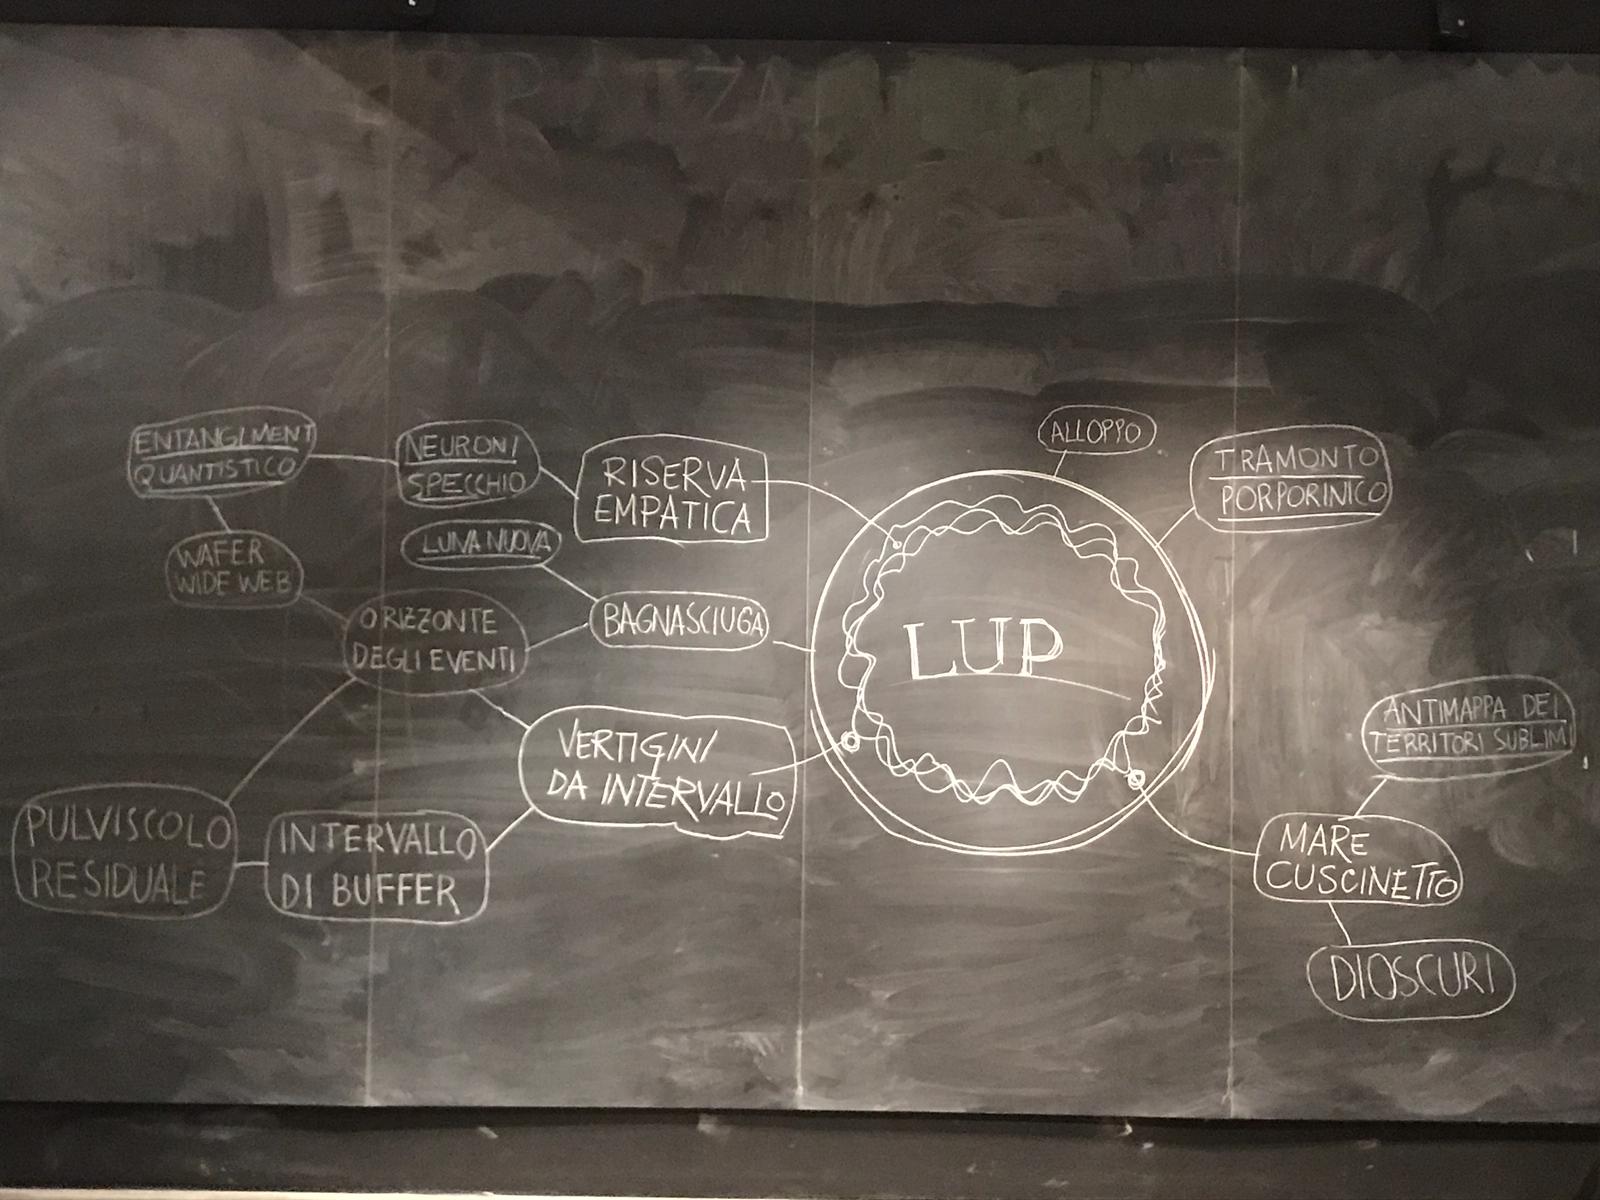 ALLOPPO
ENTANGLMENT
QUANTISTICO
NEURONI
SPECCHIO
RISERVA
EMPATICA
TRAMONTO
PORPORINICO
LUNA NUOVA
WAFER
WIDE WEB
ORIZZONTE
DEGLI EVENTI
BAGNASCIUGA
LUP
VERTIGINI
DA INTERVALLO
ANTIMAPPA DEI
TERRITORI SUBLIMI
PULVISCOLO
RESIDUALE
INTERVALLO
DI BUFFER
MARE
CUSCINETTO
DIOSCURI